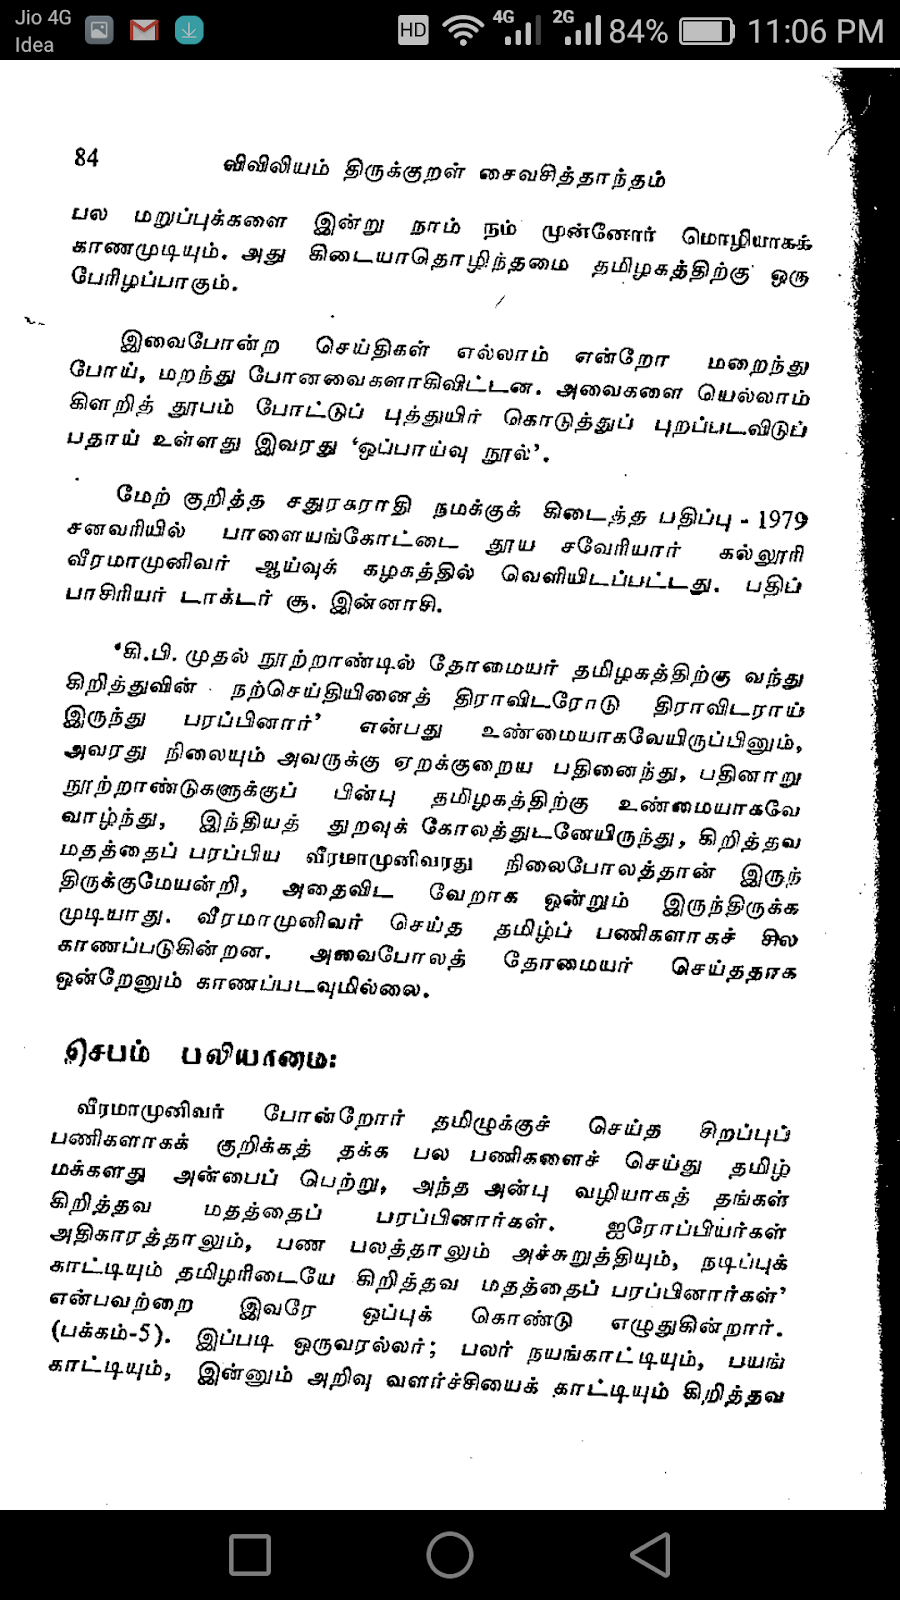 Jio 4G
Idea
HD 4G 2G 84% 11:06 PM
84 விவிலியம் திருக்குறள் சைவசித்தாந்தம்
பல மறுப்புக்களை இன்று நாம் நம் முன்னோர் மொழியாகக்
காணமுடியும். அது கிடையாதொழிந்தமை தமிழகத்திற்கு ஒரு
பேரிழப்பாகும்.
இவைபோன்ற செய்திகள் எல்லாம் என்றோ மறைந்து
போய், மறந்து போனவைகளாகிவிட்டன. அவைகளை யெல்லாம்
கிளறித் தூபம் போட்டுப் புத்துயிர் கொடுத்துப் புறப்படவிடுப்
பதாய் உள்ளது இவரது ‘ஒப்பாய்வு நூல்’.
மேற் குறித்த சதுரகராதி நமக்குக் கிடைத்த பதிப்பு - 1979
சனவரியில் பாளையங்கோட்டை தூய சவேரியார் கல்லூரி
வீரமாமுனிவர் ஆய்வுக் கழகத்தில் வெளியிடப்பட்டது. பதிப்
பாசிரியர் டாக்டர் சூ. இன்னாசி.
‘கி.பி. முதல் நூற்றாண்டில் தோமையர் தமிழகத்திற்கு வந்து
கிறித்துவின் நற்செய்தியினைத் திராவிடரோடு திராவிடராய்
இருந்து பரப்பினார்’ என்பது உண்மையாகவேயிருப்பினும்,
அவரது நிலையும் அவருக்கு ஏறக்குறைய பதினைந்து, பதினாறு
நூற்றாண்டுகளுக்குப் பின்பு தமிழகத்திற்கு உண்மையாகவே
வாழ்ந்து, இந்தியத் துறவுக் கோலத்துடனேயிருந்து, கிறித்தவ
மதத்தைப் பரப்பிய வீரமாமுனிவரது நிலைபோலத்தான் இருந்
திருக்குமேயன்றி, அதைவிட வேறாக ஒன்றும் இருந்திருக்க
முடியாது. வீரமாமுனிவர் செய்த தமிழ்ப் பணிகளாகச் சில
காணப்படுகின்றன. அவைபோலத் தோமையர் செய்ததாக
ஒன்றேனும் காணப்படவுமில்லை.
செபம் பலியாமை:
வீரமாமுனிவர் போன்றோர் தமிழுக்குச் செய்த சிறப்புப்
பணிகளாகக் குறிக்கத் தக்க பல பணிகளைச் செய்து தமிழ்
மக்களது அன்பைப் பெற்று, அந்த அன்பு வழியாகத் தங்கள்
கிறித்தவ மதத்தைப் பரப்பினார்கள். ஐரோப்பியர்கள்
அதிகாரத்தாலும், பண பலத்தாலும் அச்சுறுத்தியும், நடிப்புக்
காட்டியும் தமிழரிடையே கிறித்தவ மதத்தைப் பரப்பினார்கள்’
என்பவற்றை இவரே ஒப்புக் கொண்டு எழுதுகின்றார்.
(பக்கம்-5). இப்படி ஒருவரல்லர்; பலர் நயங்காட்டியும், பயங்
காட்டியும், இன்னும் அறிவு வளர்ச்சியைக் காட்டியும் கிறித்தவ